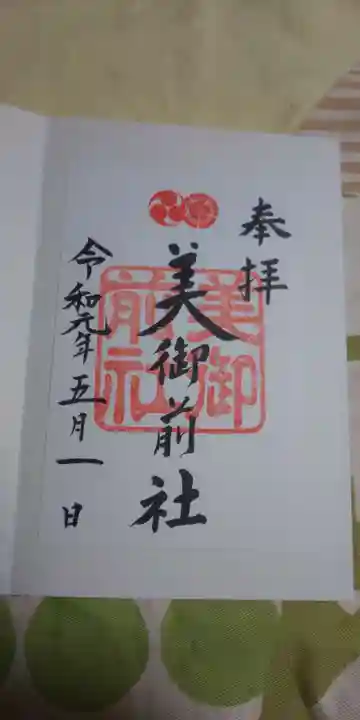 奉拝
美御前社
美御前社
令和元年五月一日